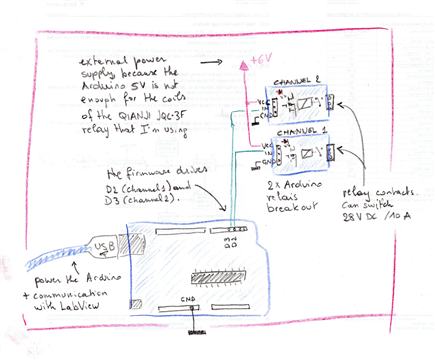 external power
supply, because the
Arduino 5V is not
enough for the coils
of the QIANJI JQC-3F
relay that I'm using
+6V
CHANNEL 2
VCC
IN
GND
CHANNEL 1
VCC
IN
GND
2x Arduino
relais
breakout
relay contacts.
Can switch
28V DC /10 A
the firmware drives
D2 (channel 1) and
D3 (channel 2).
USB
GND
power the Arduino
+ communication
with LabView